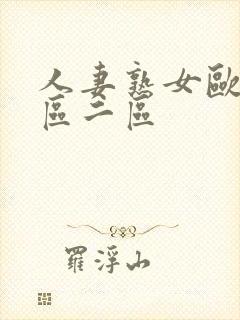 人妻熟女歐
區二區
羅浮山